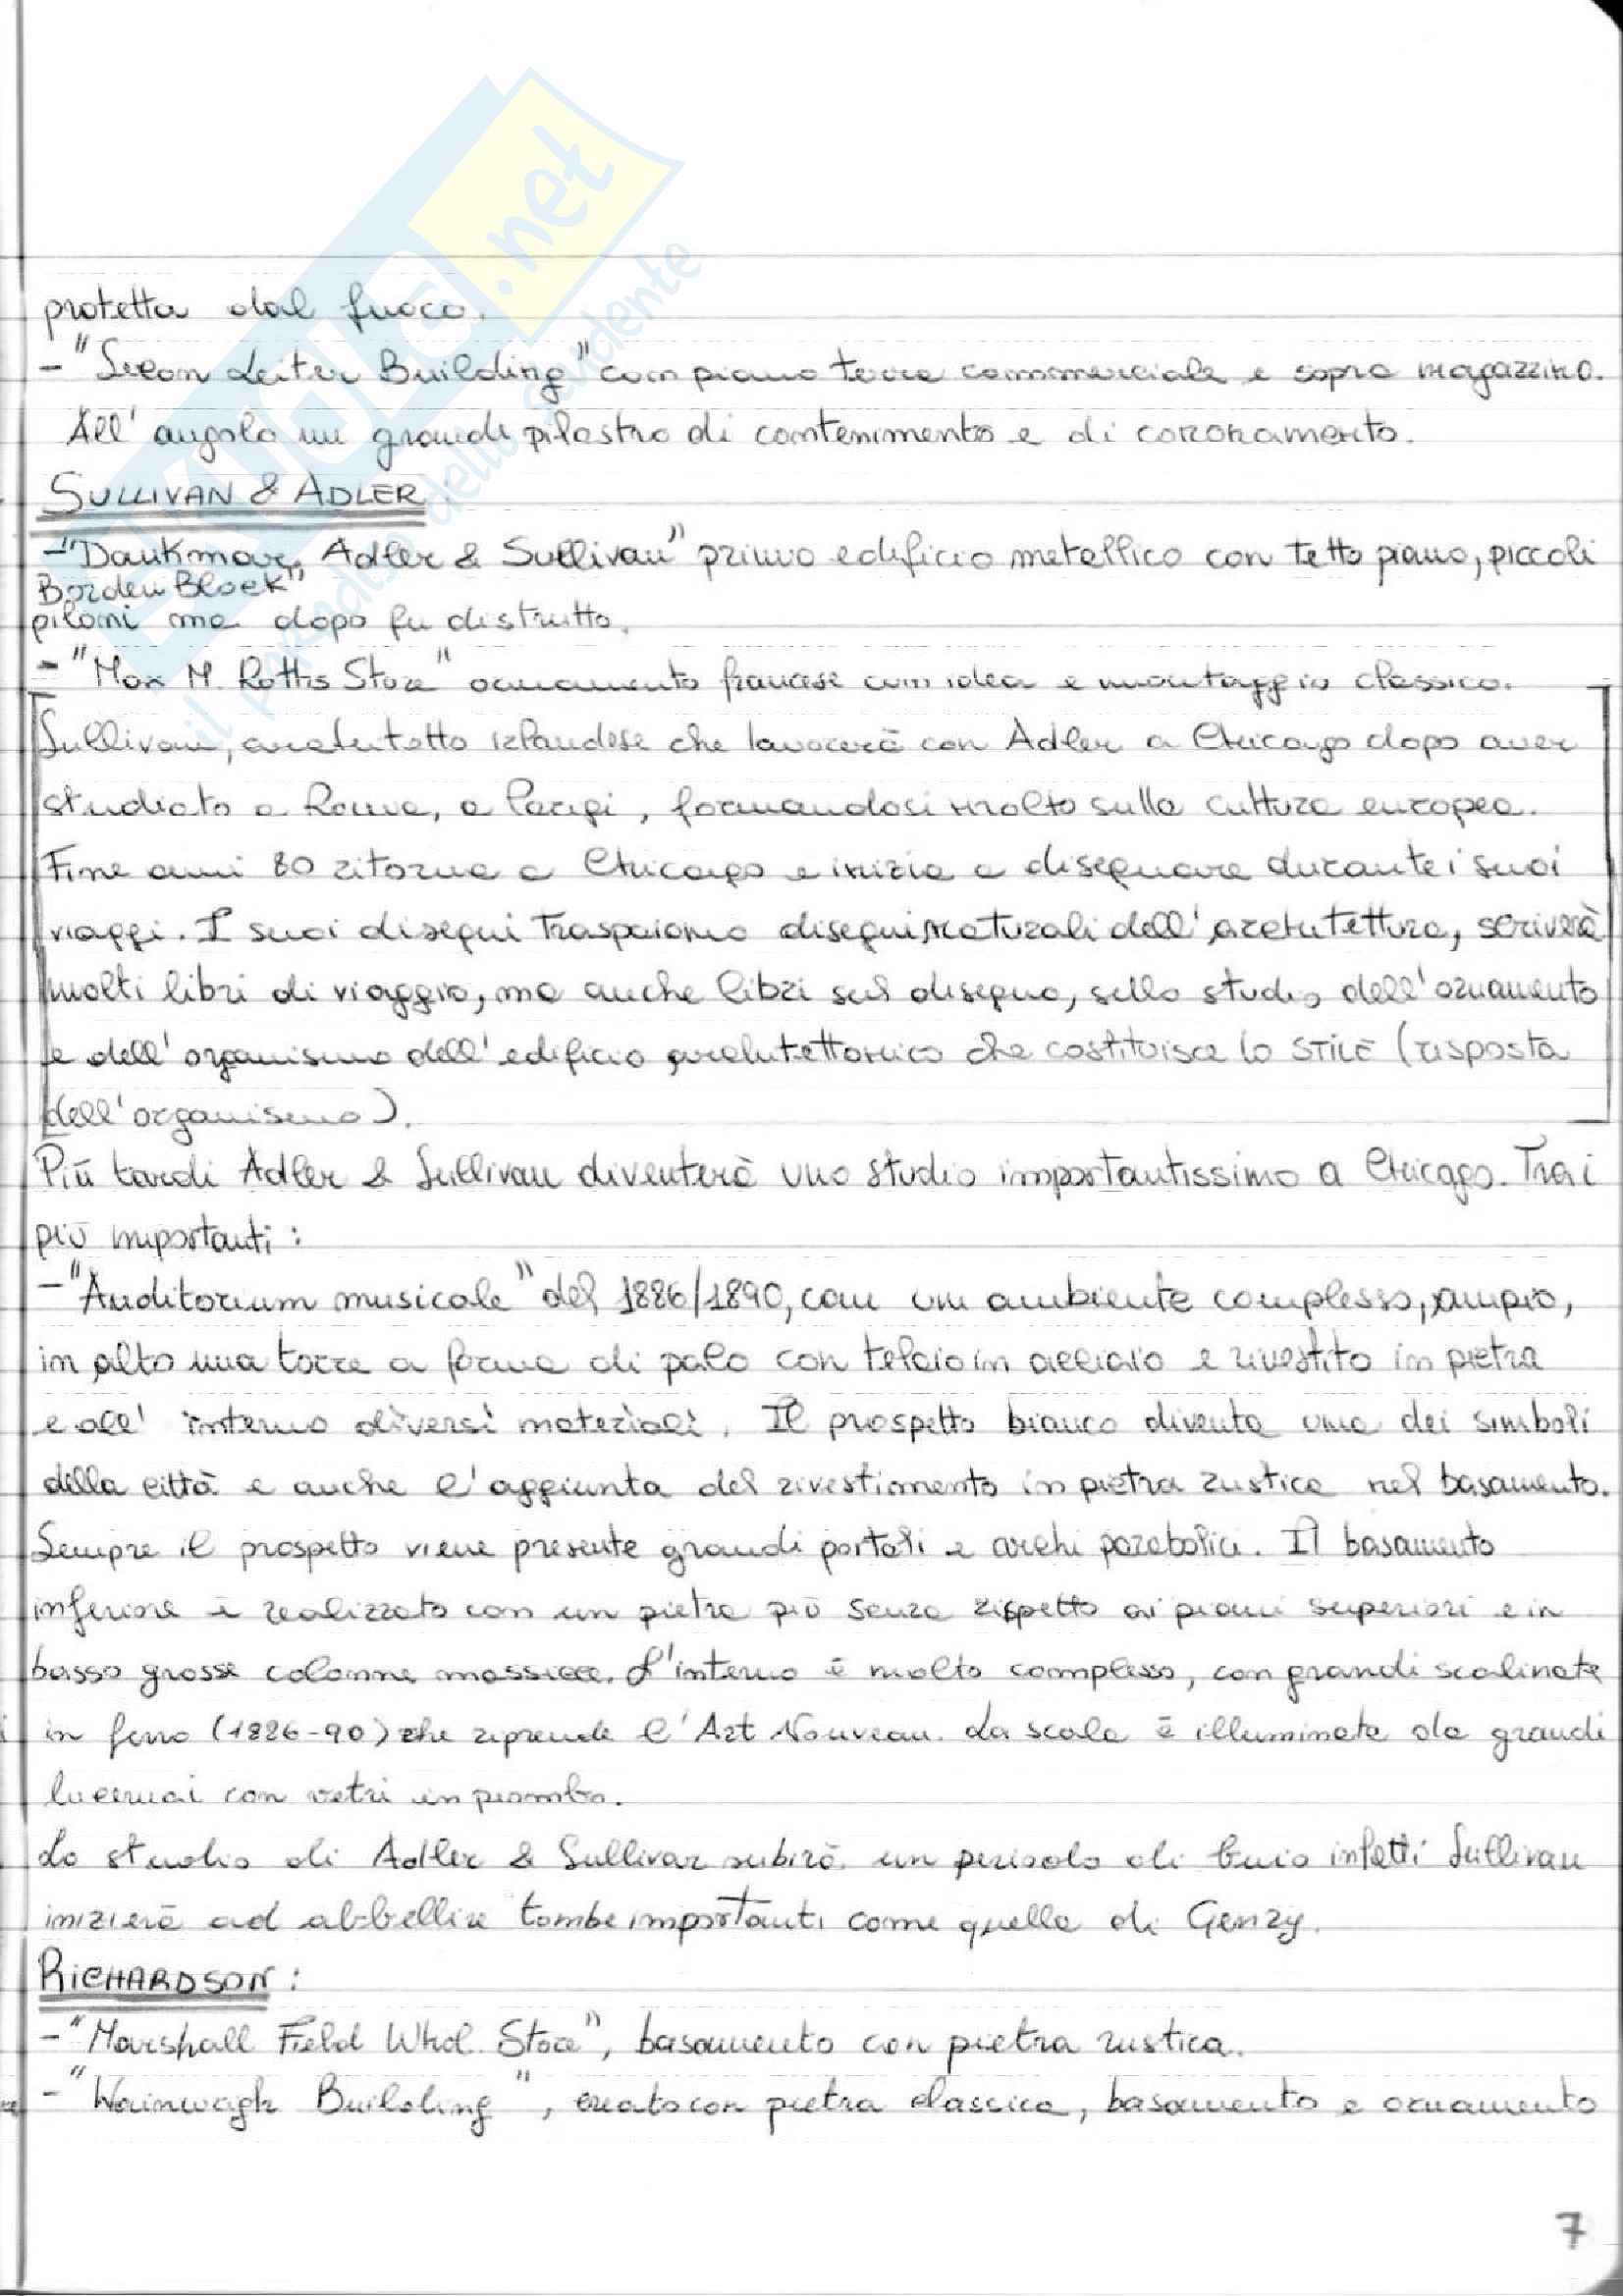 protetta dal fuoco.
- "Secon Leiter Building" con piano terra commerciale e sopra magazzino.
All' angolo un grande pilastro di contenimento e di coronamento.
SULLIVAN & ADLER
- "Dankmar, Adler & Sullivan" primo edificio metallico con tetto piano, piccoli
Borden Block"
piloni ma dopo fu distrutto.
- "Max M. Rothis Store" ornamento francese con idea e montaggio classico.
Sullivan, architetto irlandese che lavorerà con Adler a Chicago dopo aver
studiato a Roma, a Parigi, formandosi molto sulla cultura europea.
Fine anni 80 ritorna a Chicago e inizia a disegnare durante i suoi
viaggi. I suoi disegni traspaiono disegni naturali dell' architettura, scriverà
molti libri di viaggio, ma anche libri sul disegno, sullo studio dell' ornamento
e dell' organismo dell' edificio architettonico che costituisce lo STILE (risposta
dell' organismo).
Più tardi Adler & Sullivan diventerà uno studio importantissimo a Chicago. Tra i
più importanti:
- "Auditorium musicale" del 1886/1890, con un ambiente complesso, ampio,
in alto una torre a forma di palo con telaio in acciaio e rivestito in pietra
e all' interno diversi materiali. Il prospetto bianco diventa uno dei simboli
della città e anche l' aggiunta del rivestimento in pietra rustica nel basamento.
Sempre il prospetto viene presente grandi portali e archi parabolici. Il basamento
inferiore è realizzato con un pietra più scura rispetto ai piani superiori e in
basso grosse colonne massicce. L'interno è molto complesso, con grandi scalinate
in ferro (1886-90) che riprende l' Art Nouveau. La scala è illuminata da grandi
lucernai con vetri in piombo.
Lo studio di Adler & Sullivan subirà un periodo di buio infatti Sullivan
inizierà ad abbellire tombe importanti come quella di Genzy.
RICHARDSON:
- "Marshall Field Whol. Store", basamento con pietra rustica.
- "Wainwagh Building", creato con pietra classica, basamento e ornamento
7
SKUOLA.net
il paradiso dello studente